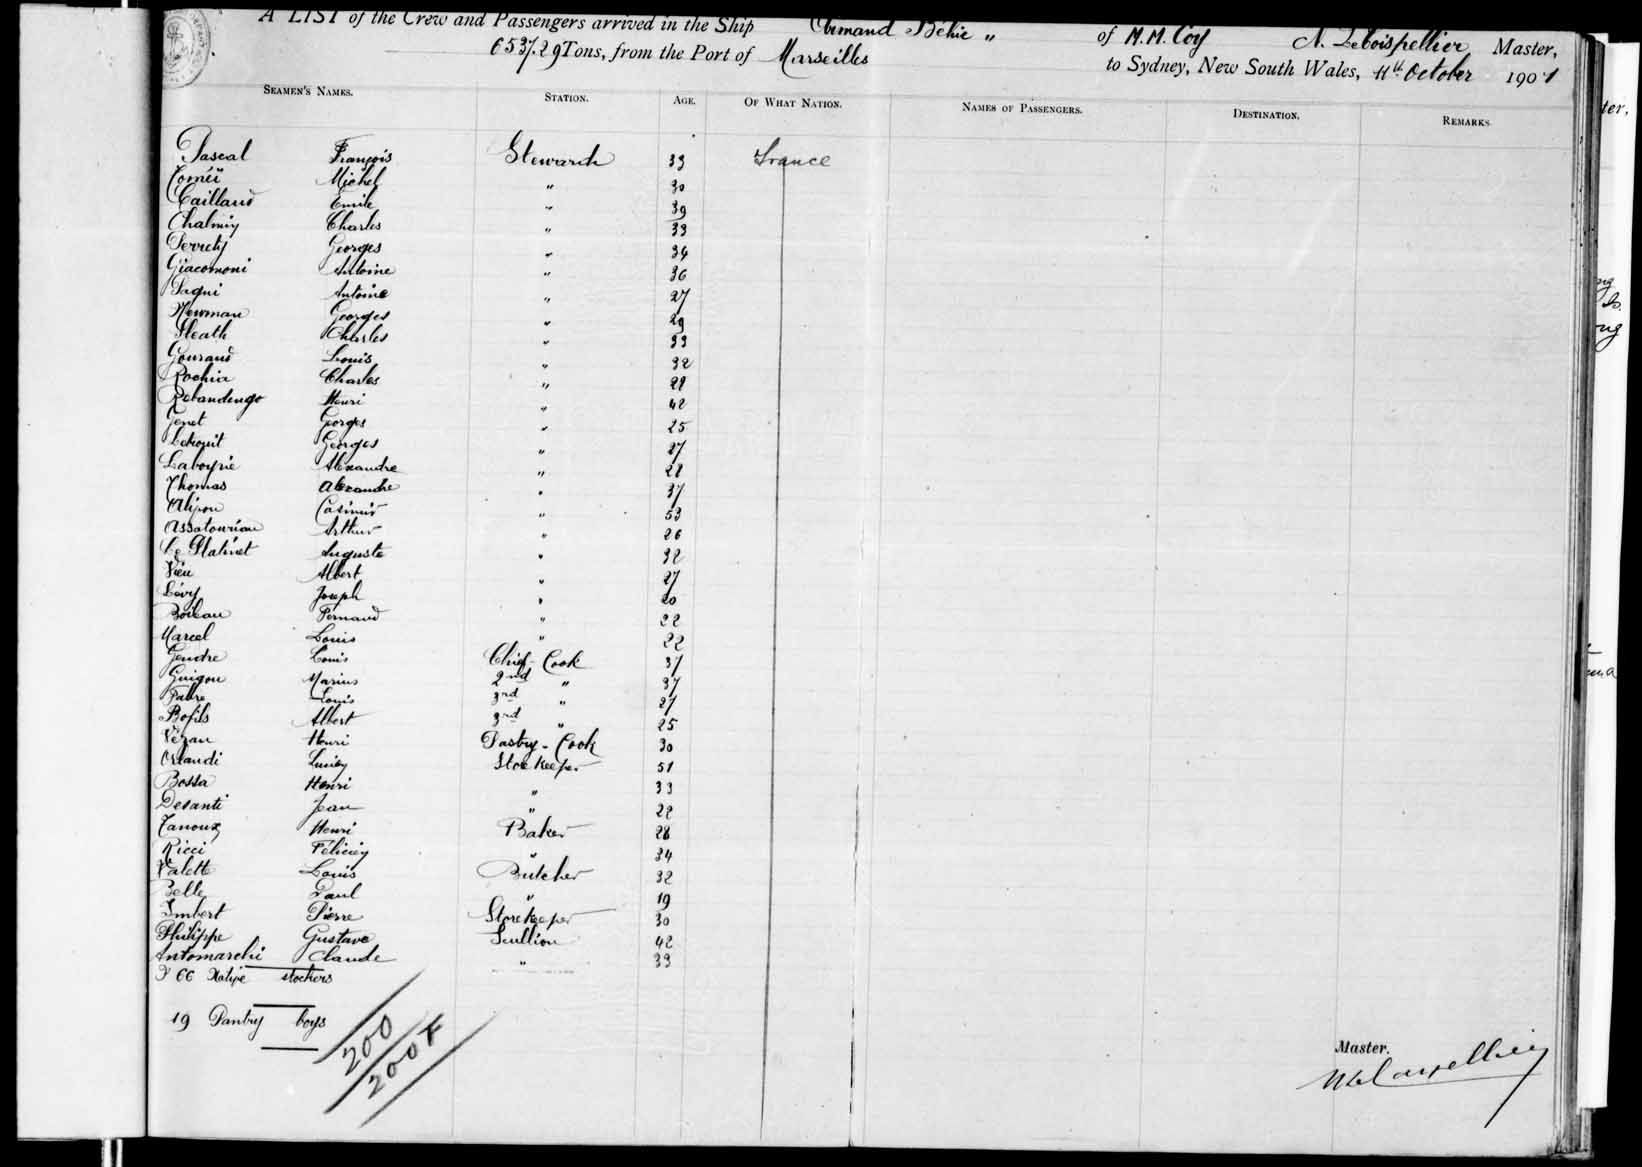 A LIST of the Crew and Passengers arrived in the Ship Armand Béhic " of M.M. Coy N. Leboispellier Master,
6537.29 Tons, from the Port of Marseilles to Sydney, New South Wales, 11th October 1901
SEAMEN'S NAMES. STATION. AGE. OF WHAT NATION. NAMES OF PASSENGERS. DESTINATION. REMARKS
Pascal François Steward 33 France
Toméï Michel " 30
Caillaud Emile " 39
Chalmin Charles " 33
Georges " 34
Giacomoni Antoine " 36
Pagni Antoine " 27
Newman Georges " 29
Heath Charles " 33
Gouraud Louis " 32
Rochia Charles " 28
Rebandengo Henri " 42
Genet Georges " 25
Georges " 27
Laboyrie Alexandre " 28
Thomas Alexandre " 37
Alipou Casimir " 53
Assatourian Arthur " 26
Le Auguste " 32
Vieu Albert " 27
Lévy Joseph " 20
Boileau Fernand " 22
Marcel Louis " 22
Gendre Louis Chief-Cook 37
Guigou Marius 2nd " 37
Fabre Louis 3rd " 27
Bofils Albert 3rd " 25
Véran Henri Pastry-Cook 30
Orlandi Lucien Storekeeper 51
Bossa Henri " 33
Desanti Jean " 22
Tanoux Henri Baker 28
Ricci Félicien " 34
Valette Louis Butcher 32
Belle Paul " 19
Imbert Pierre Storekeeper 30
Philippe Gustave Scullion 42
Antomarchi Claude " 33
66 Native stockers
19 Pantry boys
200
200 F
Master.